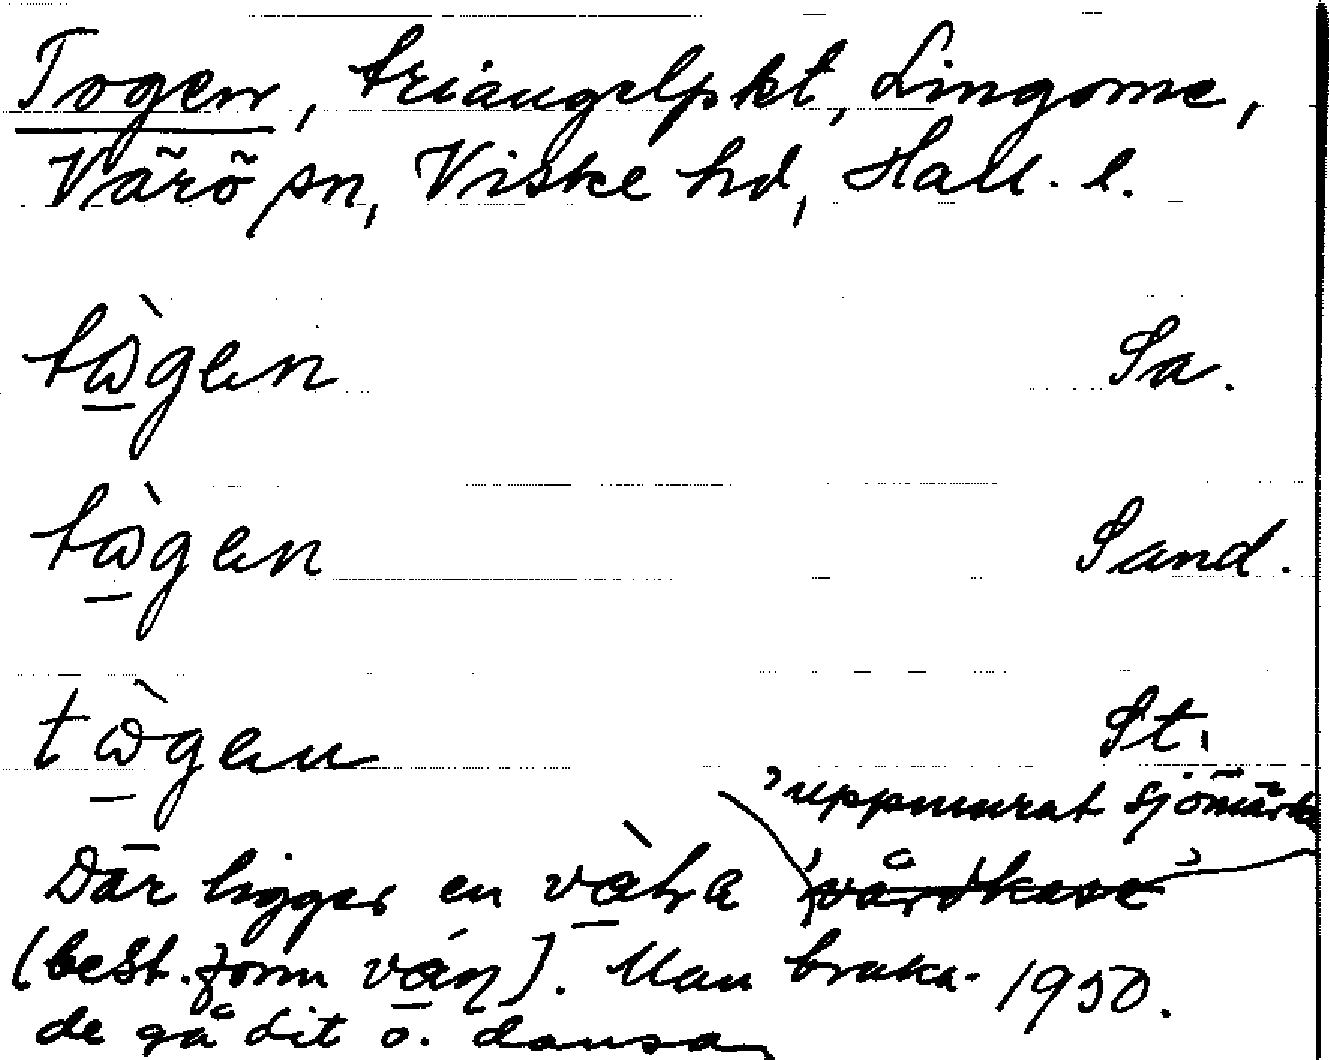 Togen, triangelpkt, Lingome,
Värö sn, Viske hd, Hall. l.
tògen Sa.
tògen Sand.
tògen St.
'uppmurat sjömärke
Där ligger en 'vårdkase'
(best. form ). Man bruka- 1950.
de gå dit o. dansa